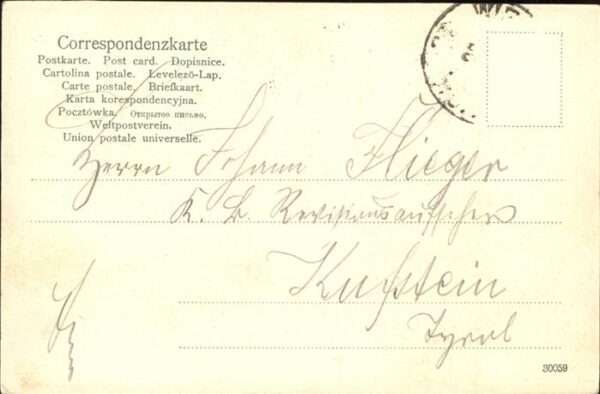 Correspondenzkarte
Postkarte. Post card. Dopisnice.
Cartolina postale. Levelező-Lap.
Carte postale. Briefkaart.
Karta korespondencyjna.
Pocztówka. Открытое письмо.
Weltpostverein.
Union postale universelle.
WIE
Herrn Johann Flieger
K. K. Revisionsaufseher
Kufstein
Tyrol
30059